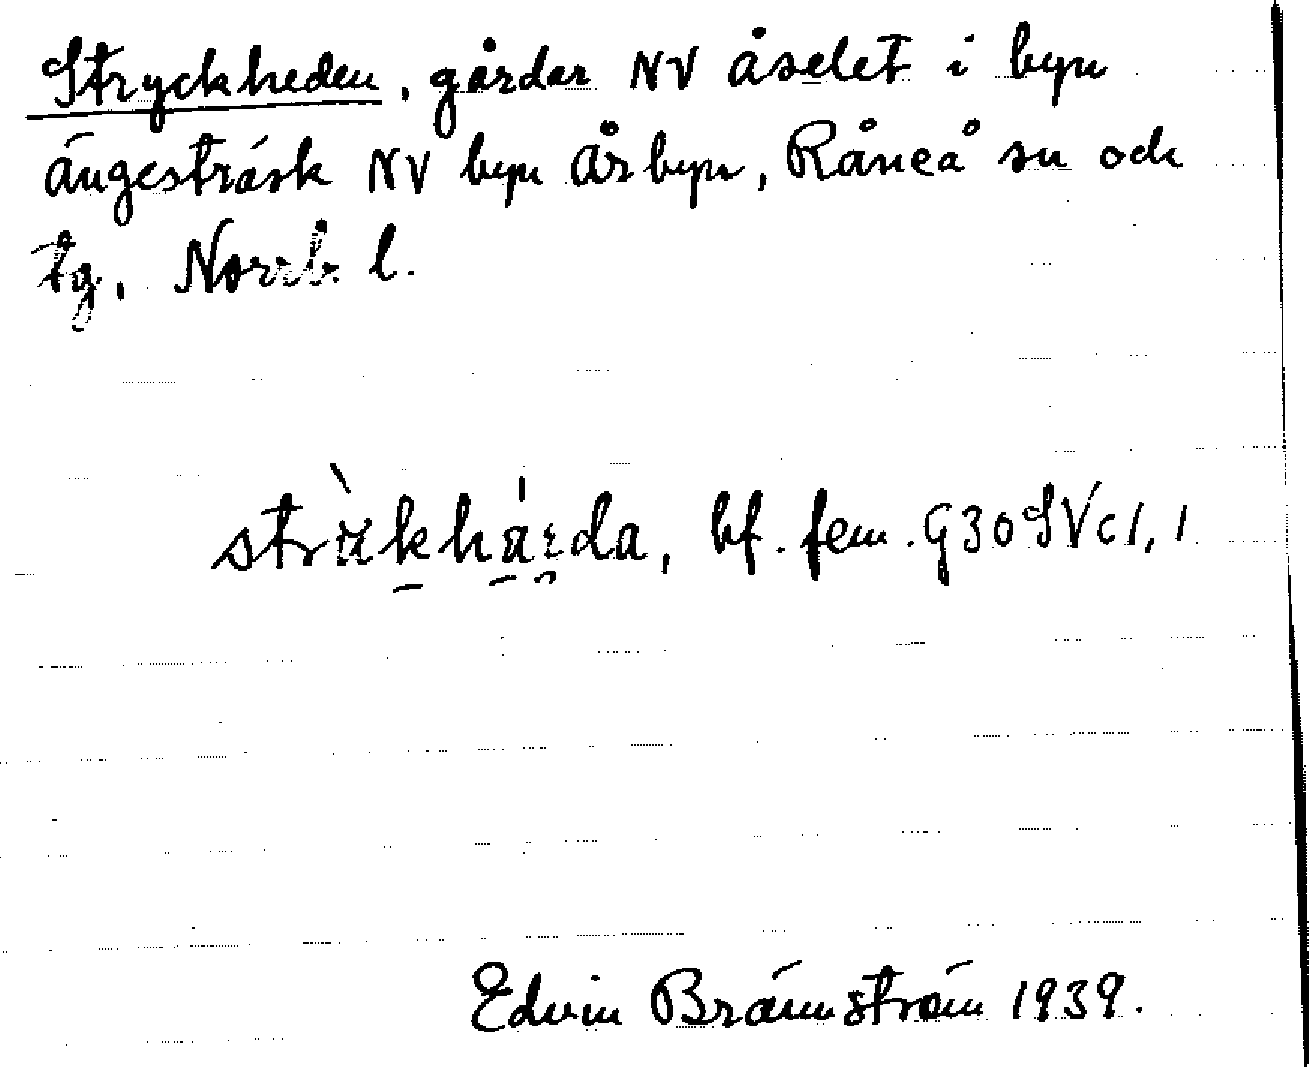 Stryckheden, gårdar NV åselet i byn
Ängesträsk NV byn Årbyn, Råneå sn och
tg, Norrb. l.
bf. fem. G30SVc1,1
Edvin Brännström 1939.